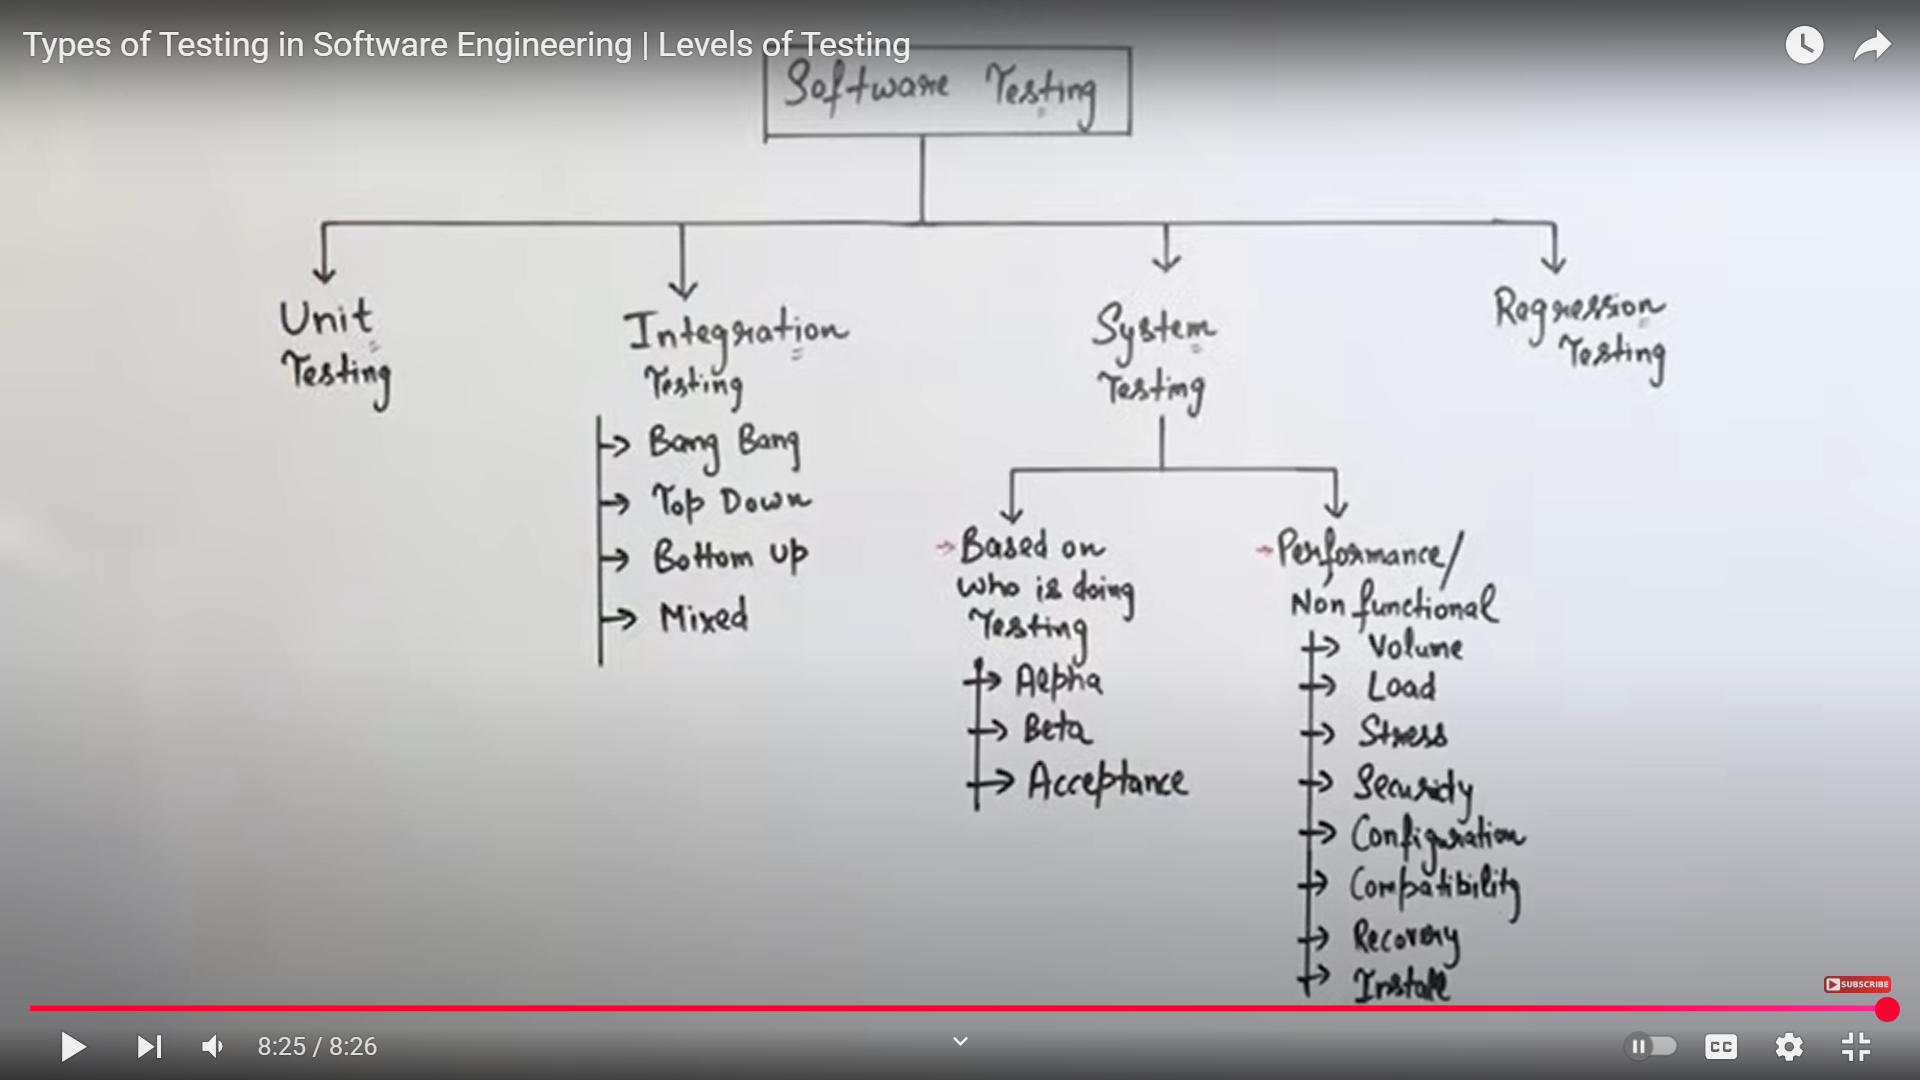 Types of Testing in Software Engineering | Levels of Testing
Software Testing
Unit
Testing
Integration
Testing
Bang Bang
Top Down
Bottom Up
Mixed
System
Testing
Based on
who is doing
Testing
Alpha
Beta
Acceptance
Performance/
Non functional
Volume
Load
Stress
Security
Configuration
Compatibility
Recovery
Install
Regression
Testing
SUBSCRIBE
8:25 / 8:26
CC